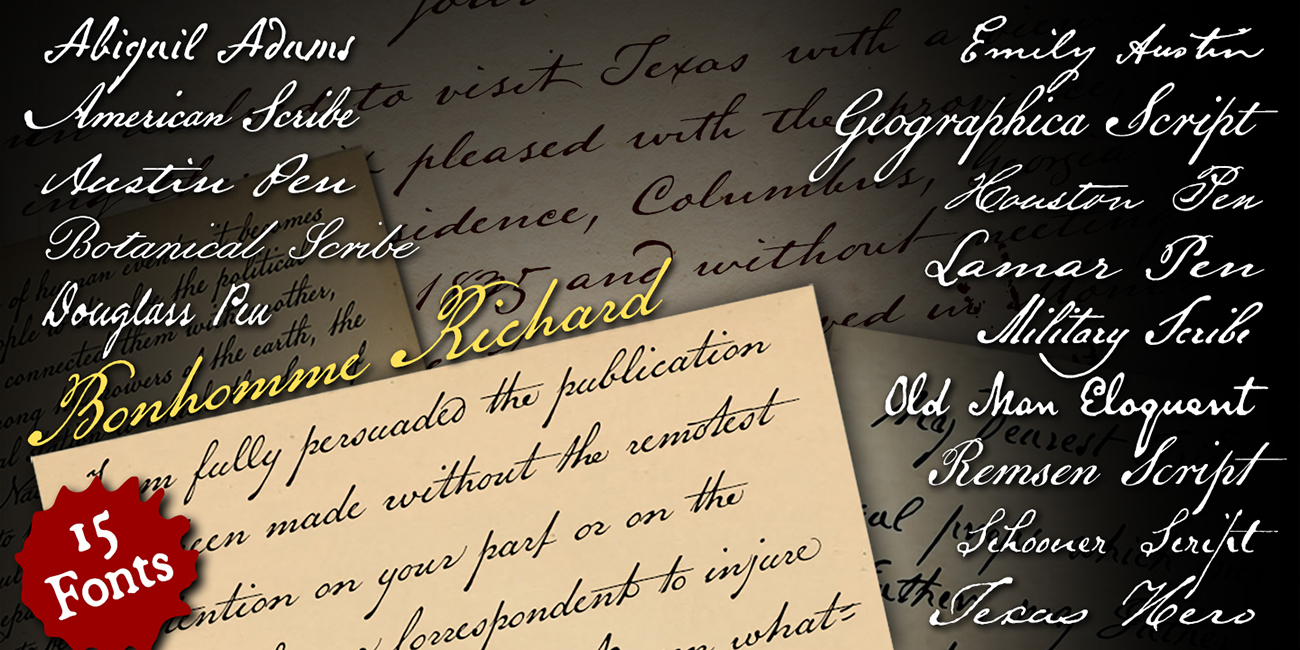 Abigail Adams
American Scribe
Austin Pen
Botanical Scribe
Douglass Pen
Bonhomme Richard
Emily Austin
Geographica Script
Houston Pen
Lamar Pen
Military Scribe
Old Man Eloquent
Remsen Script
Schooner Script
Texas Hero
15
Fonts
to visit Texas with a
pleased with the province,
idence, Columbus, Georgia
1835 and without meeting
ved in
it becomes
of human events
the political
them with another,
connected
powers of the earth, the
am fully persuaded the publication
een made without the remotest
ention on your part or on the
correspondent to injure
what=
My Dearest